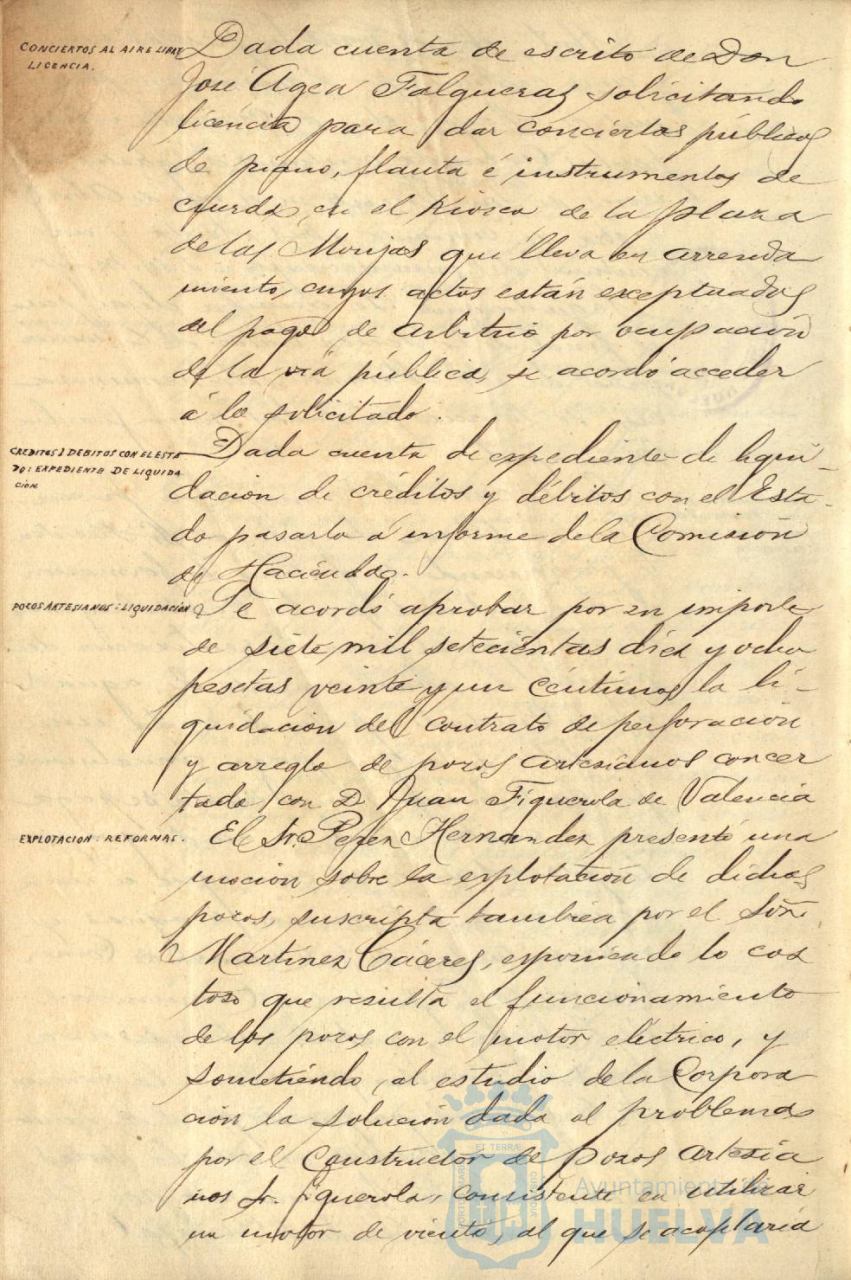 CONCIERTOS AL AIRE LIBRE
LICENCIA.
Dada cuenta de escrito de Don
José Agea Falgueras solicitando
licencia para dar conciertos públicos
de piano, flauta é instrumentos de
cuerda, en el Kiosco de la plaza
de las Monjas que lleva en arrenda
miento, cuyos actos están exceptuados
del pago de arbitrio por ocupación
de la via pública, se acordó acceder
á lo solicitado.
CREDITOS Y DEBITOS CON EL ESTA
DO: EXPEDIENTE DE LIQUIDA
CIÓN
Dada cuenta de expediente de liqui-
dación de créditos y débitos con el Esta-
do pasarlo á informe de la Comisión
de Hacienda.
POZOS ARTESIANOS: LIQUIDACIÓN
Se acordó aprobar por su importe
de siete mil setecientas diez y ocho
pesetas veinte y un céntimos la li-
quidación del contrato de perforación
y arreglo de pozos artesianos concer
tado con D. Juan Figuerola de Valencia
EXPLOTACION: REFORMAS.
El Sr. Perez Hernandez presentó una
moción sobre la explotación de dichos
pozos, suscripta tambien por el Señor
Martínez Cáceres, exponiendo lo cos
toso que resulta el funcionamiento
de los pozos con el motor eléctrico, y
sometiendo, al estudio de la Corpora
ción la solución dada al problema
por el Constructor de pozos artesia
nos Sr. Figuerola, consistente en utilizar
un motor de viento, al que se acoplaría
Ayuntamiento de
HUELVA